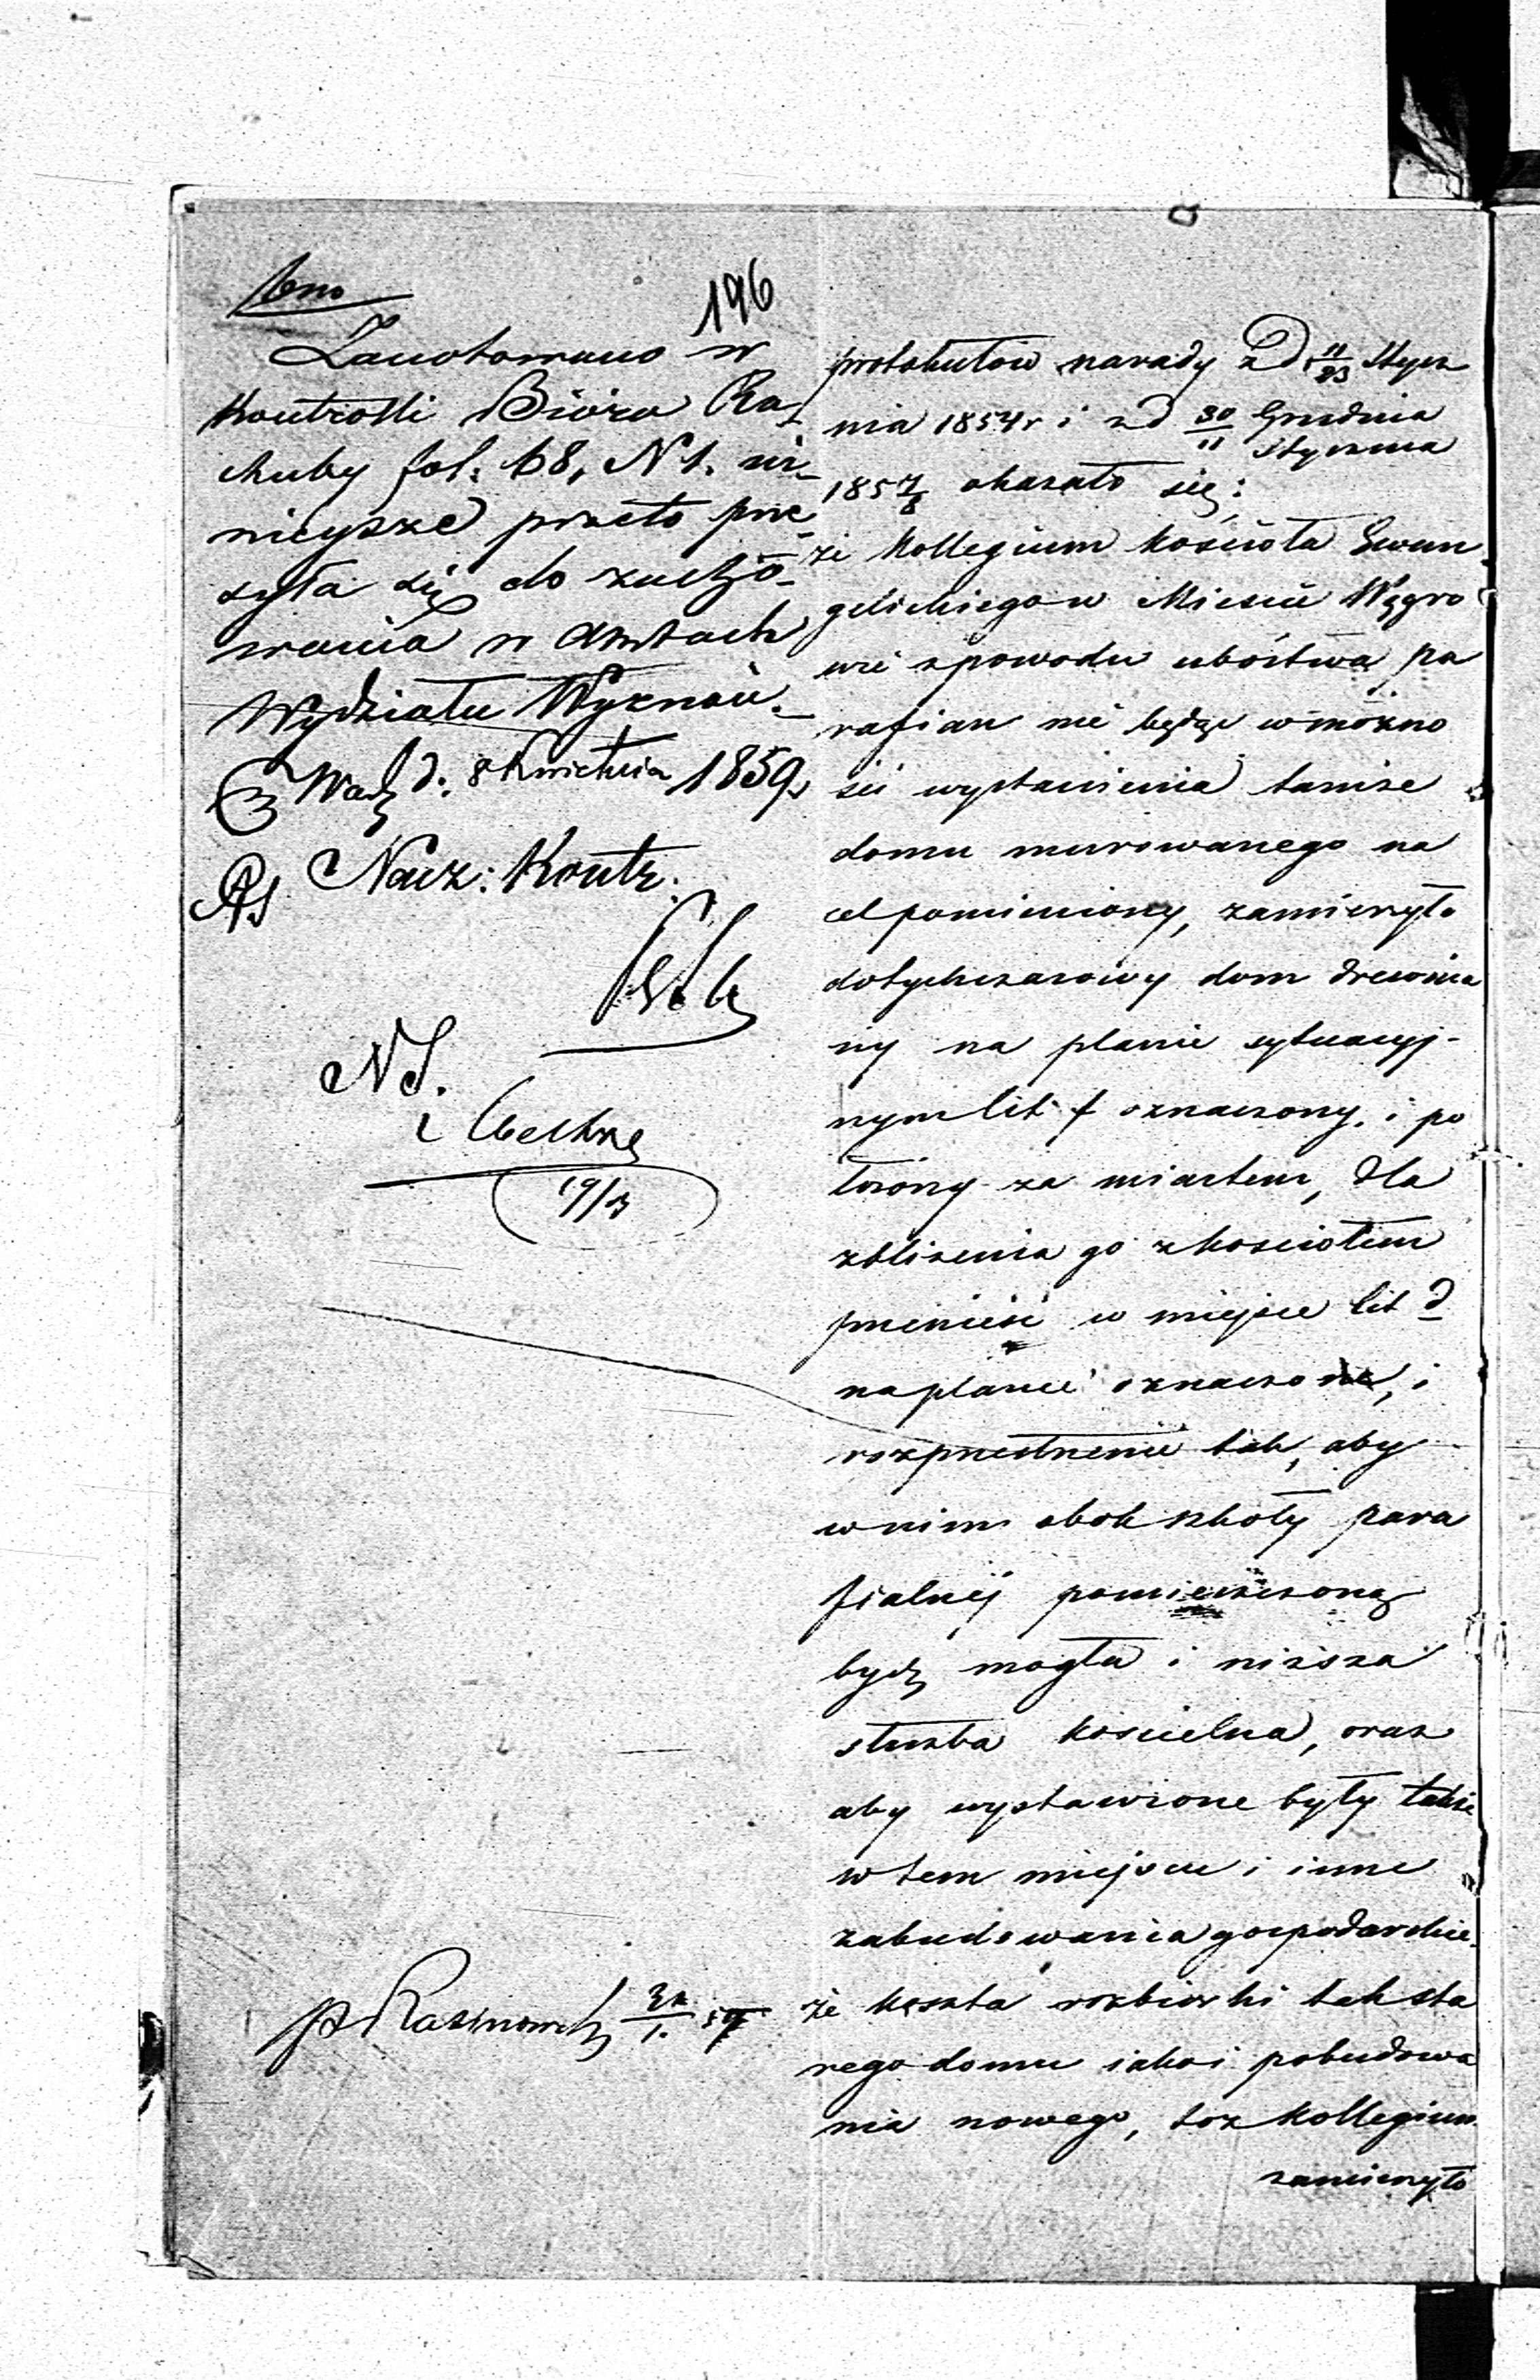 196
Zanotowano w
Kontrolli Bióra Ra-
chuby fol: 68, N 1. ni-
nieysze przeto prze-
syła się do zacho-
wania w Aktach
Wydziału Wyznań.
Wa d. 8 Kwietnia 1859.
Nacz: Kontr:
NS.
19/
protokułów narady z d 11/23 Stycz
nia 1854 r i z d 30/11 Grudnia Stycznia
1857/8 okazało się;
że Kollegium kościoła Ewan
gelickiego w Mieście Węgro
wie z powodu ubóstwa pa
rafian nie będąc w możno
ści wystawienia tamże
domu murowanego na
cel pomieniony, zamierzyło
dotychczasowy dom drewnia
ny na planie sytuacyj-
nym lit f oznaczony, i po
łożony za miastem, dla
zbliżenia go z kościołem
przenieść w miejsce lit d
na planie oznaczone, i
rozprzestrzenić tak, aby
w nim obok szkoły para
fialnéj pomieszczoną
bydź mogła i niższa
służba kościelna, oraz
aby wystawione były także
w tem miejscu i inne
zabudowania gospodarskie.
że koszta rozbiórki tak sta
rego domu iako i pobudowa
nia nowego, toż Kollegium
zamierzyło